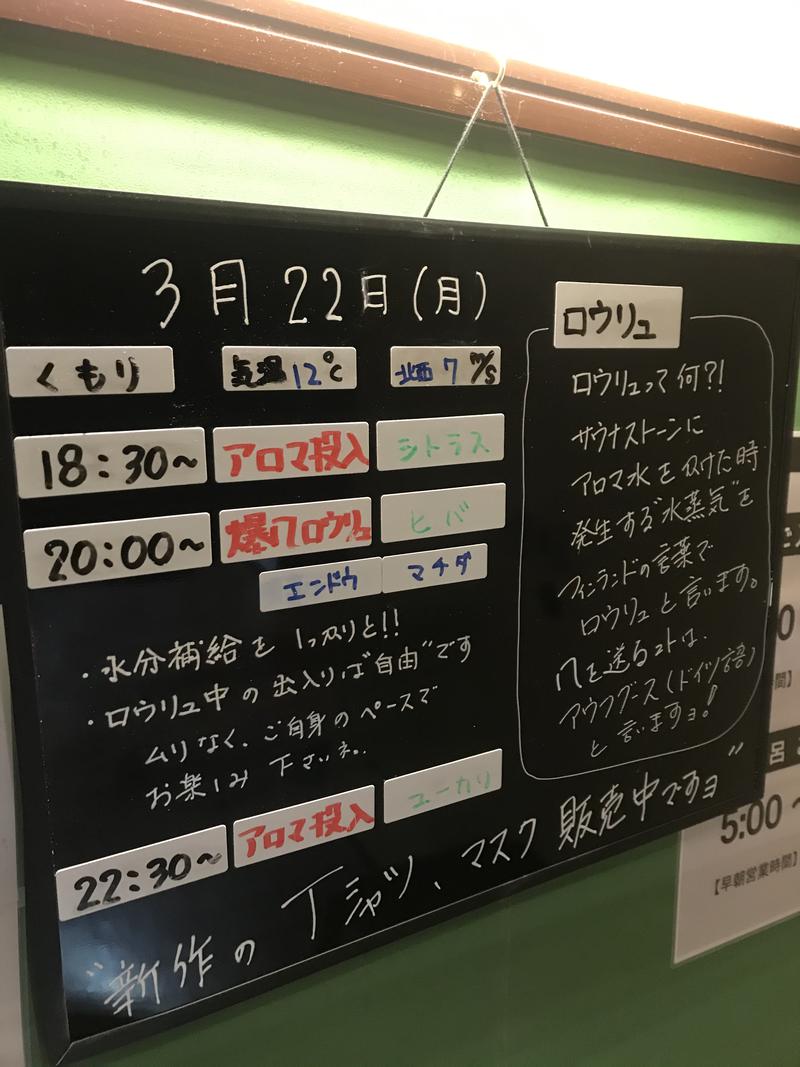 3月22日(月)
くもり 気温12℃ 北西7m/s
18:30~ アロマ投入 シトラス
20:00~ 爆八ロウリュ ヒバ
エンドウ マチダ
・水分補給をしっかりと!!
・ロウリュ中の出入りは"自由"です
ムリなく、ご自身のペースで
お楽しみ下さいネ。
22:30~ アロマ投入 ユーカリ
"新作のTシャツ、マスク販売中ですョ"
ロウリュ
ロウリュって何?!
サウナストーンに
アロマ水をかけた時
発生する"水蒸気"を
フィンランドの言葉で
ロウリュと言います。
八を送るコトは、
アウフグース(ドイツ語)
と言いますョ!
5:00~
【早朝営業時間】